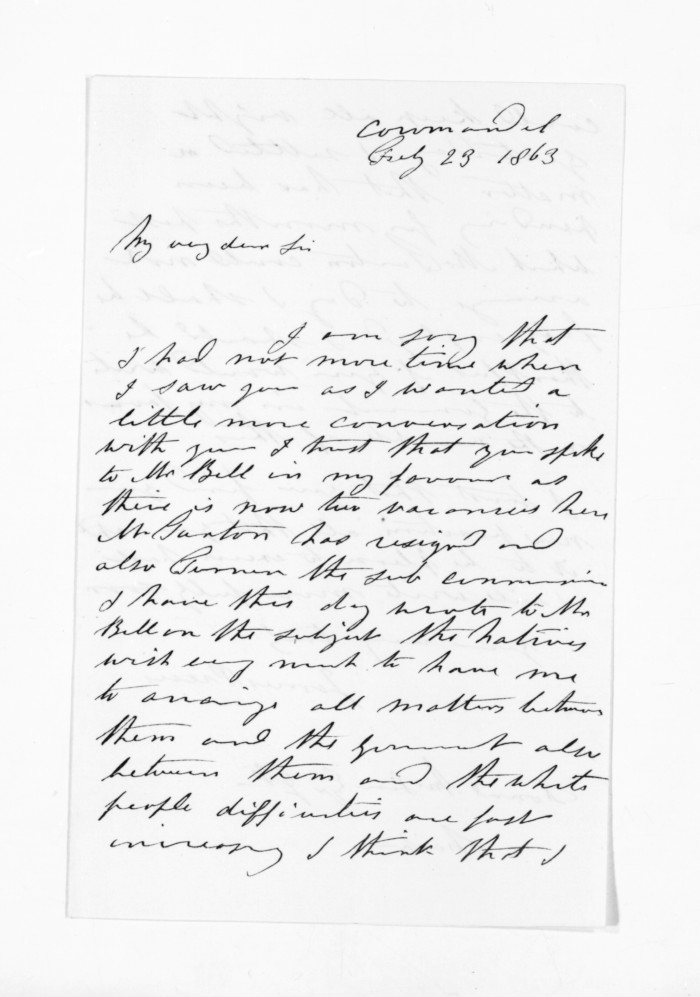 Coromandel
July 23 1863
My very dear Sir
I am sory that
I had not more time when
I saw you as I wanted a
little more conversation
with you I trust that you spoke
to Mr Bell in my favour as
there is now two vacancies here
Mr has resigned and
also Turner the sub commissio
I have this day wrote to Mr
Bell on the subject the natives
wish very much to have me
to arrange all matters between
them and the goverment also
between them and the white
people difficulties are fast
increasing I think that I